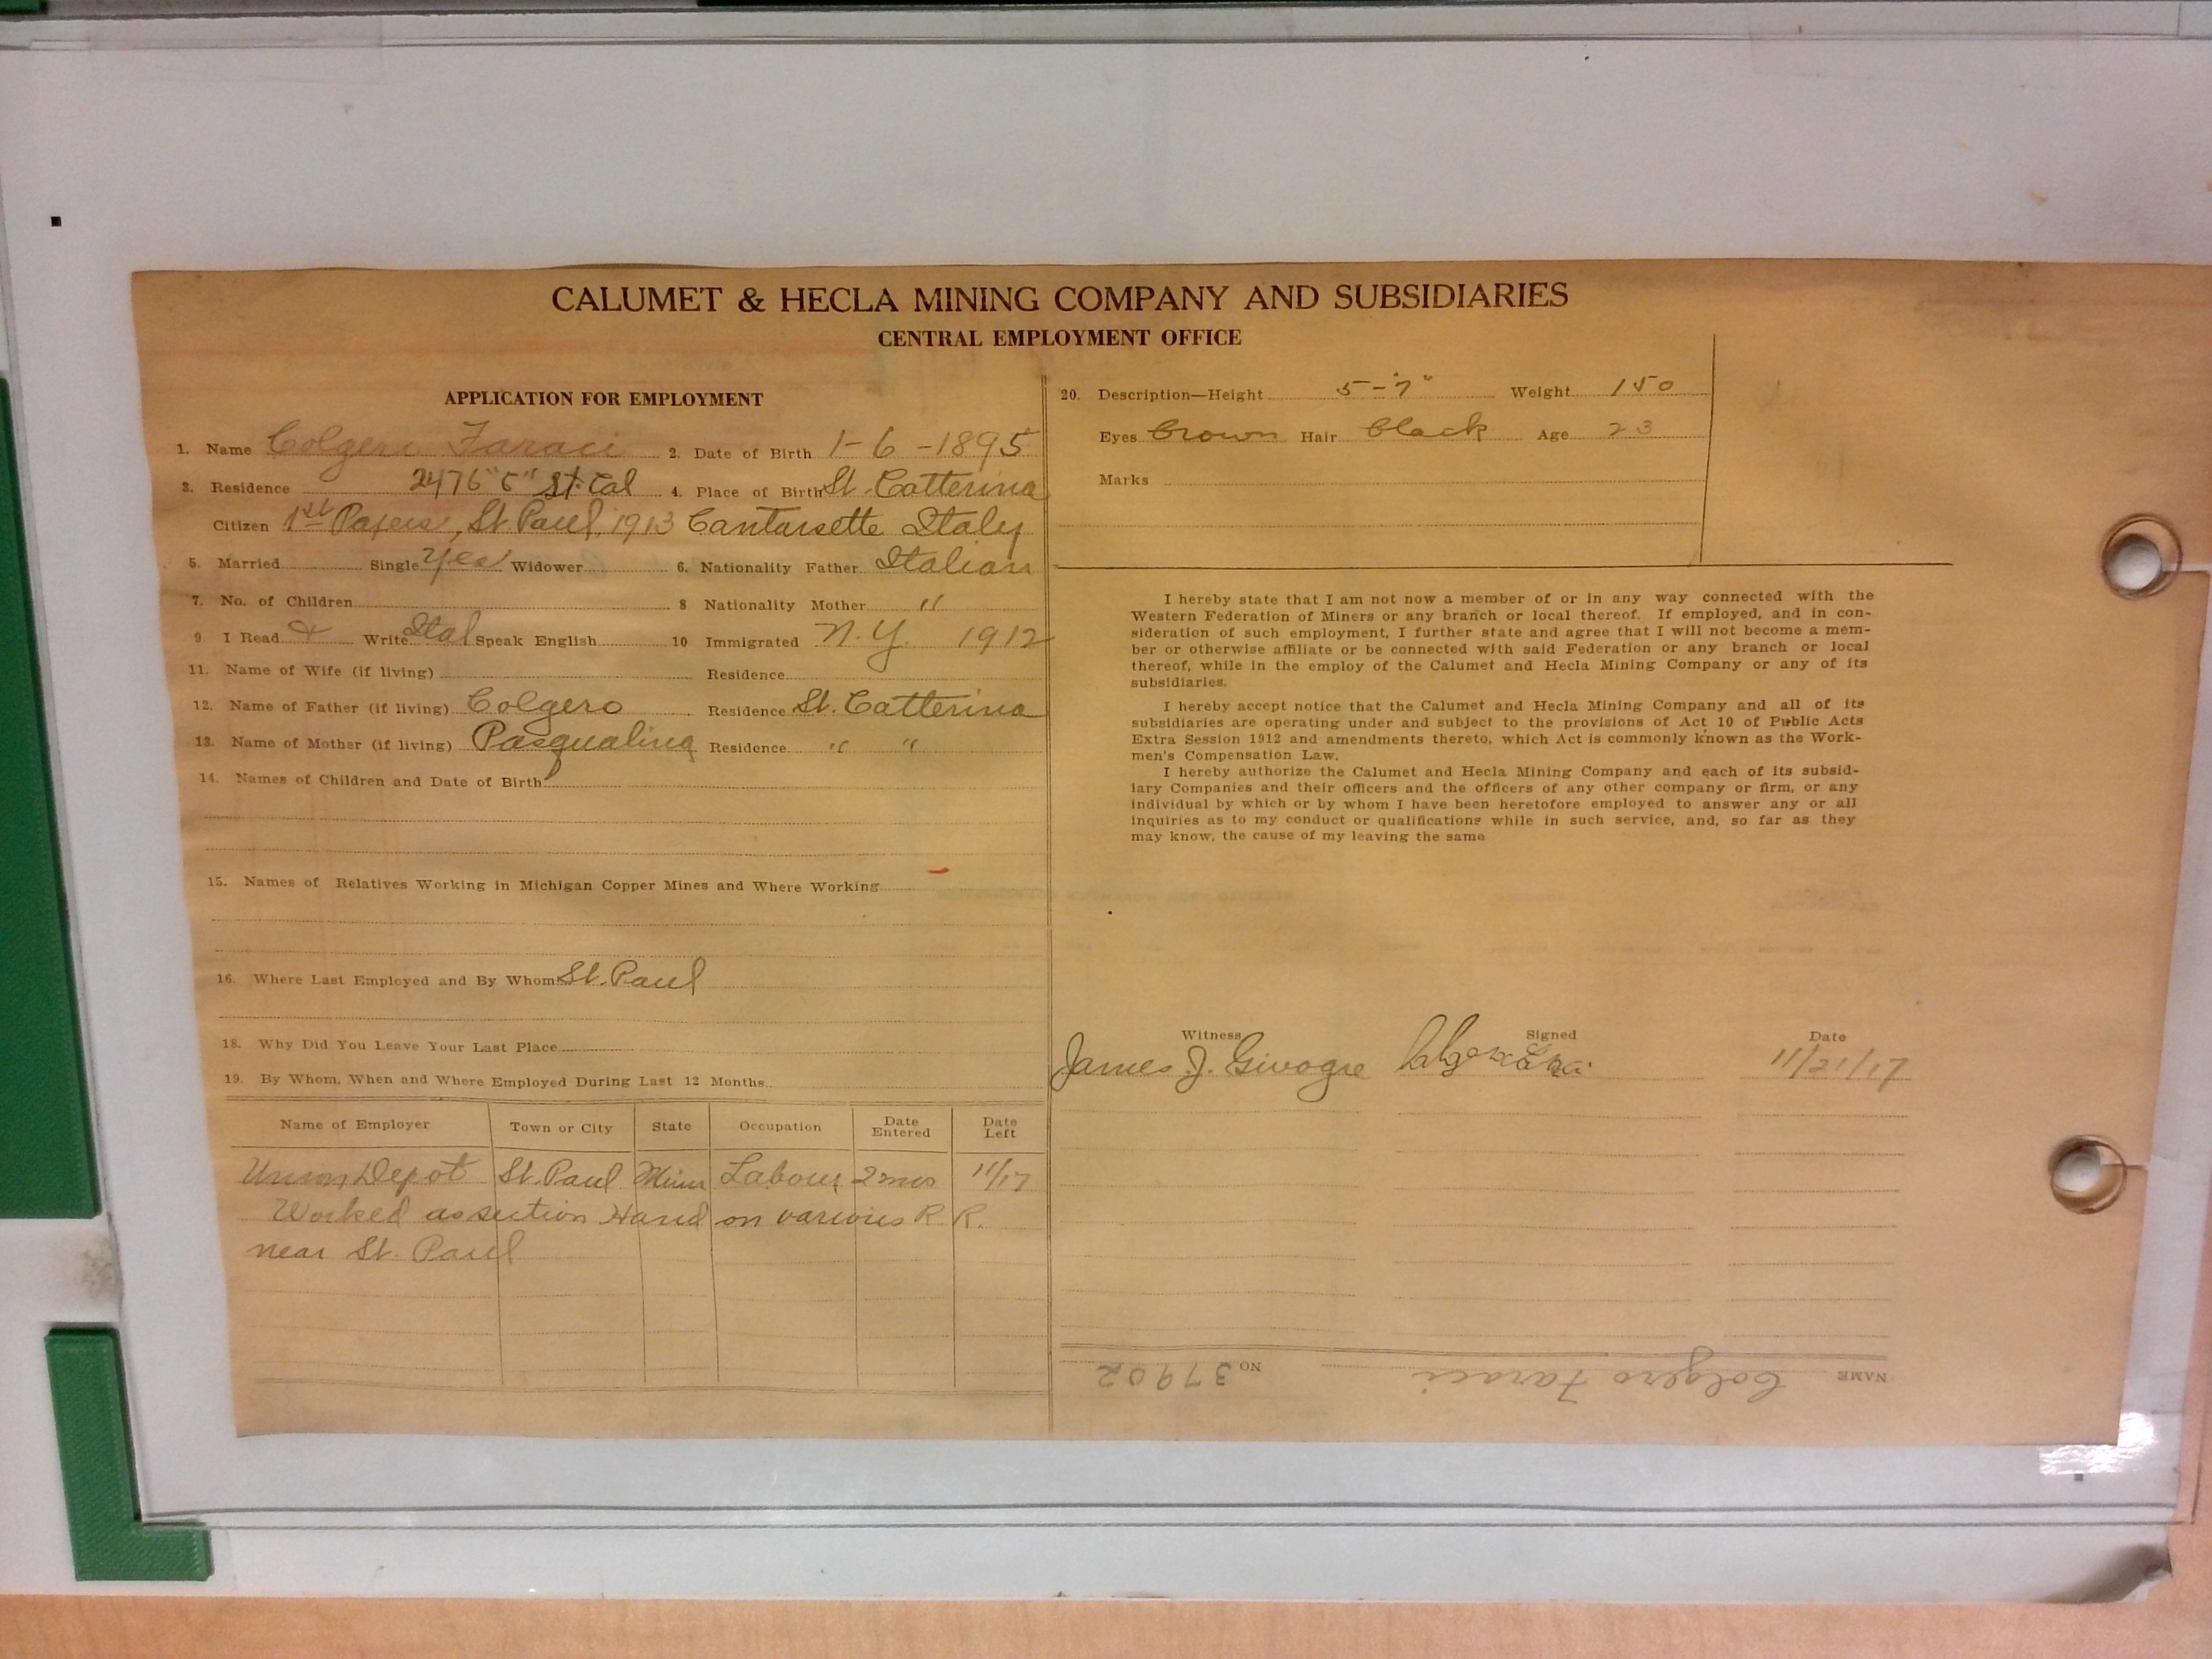 CALUMET & HECLA MINING COMPANY AND SUBSIDIARIES
CENTRAL EMPLOYMENT OFFICE
APPLICATION FOR EMPLOYMENT
1. Name Colgero Faraci 2. Date of Birth 1-6-1895
3. Residence 2476 "C" St. Cal 4. Place of Birth St. Catterina
Citizen 1st Papers, St. Paul, 1913 Cantarsette Italy
5. Married Single Yes Widower 6. Nationality Father Italian
7. No. of Children 8 Nationality Mother "
9 I Read & Write Ital Speak English 10 Immigrated N.Y. 1912
11. Name of Wife (if living) Residence
12. Name of Father (if living) Colgero Residence St. Catterina
13. Name of Mother (if living) Pasqualina Residence " "
14. Names of Children and Date of Birth
15. Names of Relatives Working in Michigan Copper Mines and Where Working
16. Where Last Employed and By Whom St. Paul
18. Why Did You Leave Your Last Place
19. By Whom, When and Where Employed During Last 12 Months
Name of Employer Town or City State Occupation Date Entered Date Left
Union Depot St. Paul Minn Labour 2 mos 11/17
Worked as section Hand on various R R.
near St. Paul
20. Description—Height 5-7" Weight 150
Eyes Brown Hair Black Age 23
Marks
I hereby state that I am not now a member of or in any way connected with the
Western Federation of Miners or any branch or local thereof. If employed, and in con-
sideration of such employment, I further state and agree that I will not become a mem-
ber or otherwise affiliate or be connected with said Federation or any branch or local
thereof, while in the employ of the Calumet and Hecla Mining Company or any of its
subsidiaries.
I hereby accept notice that the Calumet and Hecla Mining Company and all of its
subsidiaries are operating under and subject to the provisions of Act 10 of Public Acts
Extra Session 1912 and amendments thereto, which Act is commonly known as the Work-
men's Compensation Law.
I hereby authorize the Calumet and Hecla Mining Company and each of its subsid-
iary Companies and their officers and the officers of any other company or firm, or any
individual by which or by whom I have been heretofore employed to answer any or all
inquiries as to my conduct or qualifications while in such service, and, so far as they
may know, the cause of my leaving the same
Witness Signed Date
James J. Givogre 11/21/17
NAME Colgero Faraci NO 37902